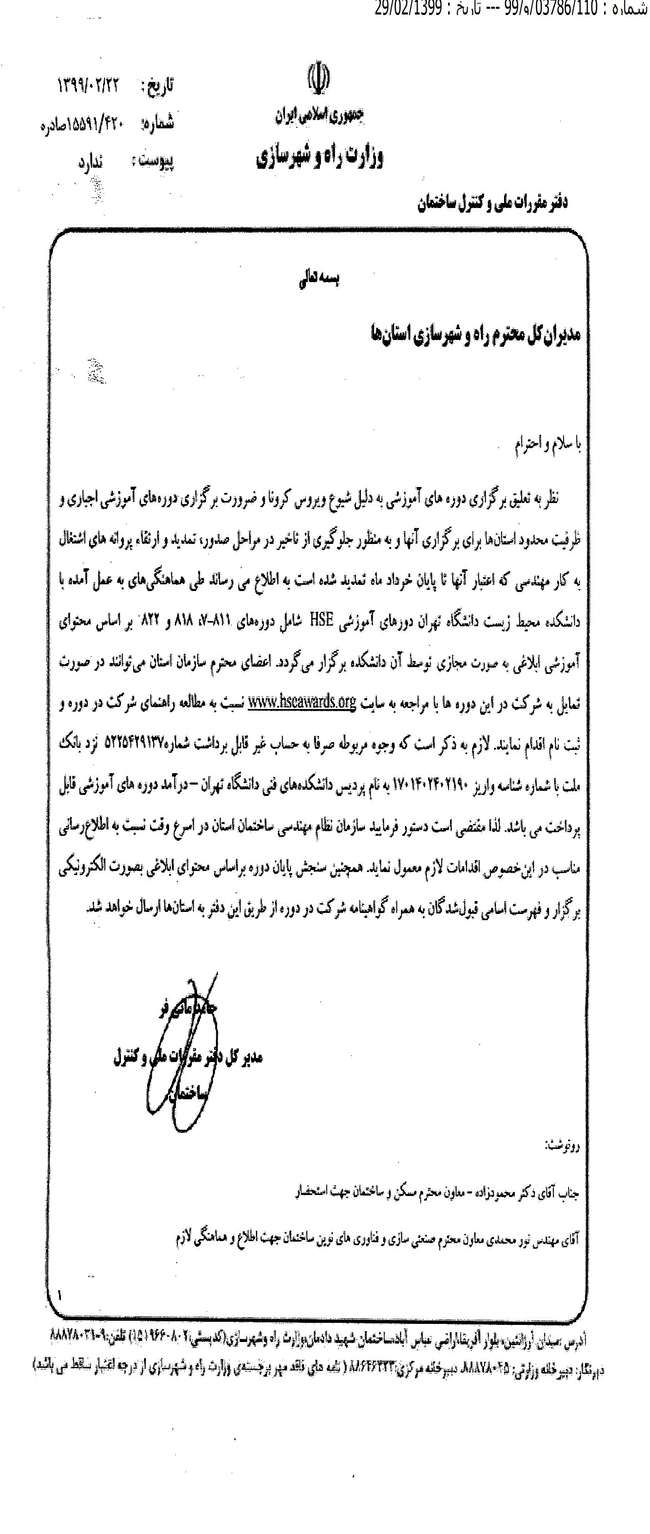 شماره : 99/و/03786/110 --- تاریخ : 29/02/1399
جمهوری اسلامی ایران
وزارت راه و شهرسازی
دفتر مقررات ملی و کنترل ساختمان
تاریخ: ۱۳۹۹/۰۲/۲۲
شماره: ۱۵۵۹۱/۴۲۰صادره
پیوست: ندارد
بسمه تعالی
مدیران کل محترم راه و شهرسازی استان‌ها
با سلام و احترام
نظر به تعلیق برگزاری دوره های آموزشی به دلیل شیوع ویروس کرونا و ضرورت برگزاری دوره‌های آموزشی اجباری و
ظرفیت محدود استان‌ها برای برگزاری آنها و به منظور جلوگیری از تاخیر در مراحل صدور، تمدید و ارتقاء پروانه های اشتغال
به کار مهندسی که اعتبار آنها تا پایان خرداد ماه تمدید شده است به اطلاع می رساند طی هماهنگی‌های به عمل آمده با
دانشکده محیط زیست دانشگاه تهران دورهای آموزشی HSE شامل دوره‌های ۸۱۱-۷، ۸۱۸ و ۸۲۲ بر اساس محتوای
آموزشی ابلاغی به صورت مجازی توسط آن دانشکده برگزار می‌گردد. اعضای محترم سازمان استان می‌توانند در صورت
تمایل به شرکت در این دوره ها با مراجعه به سایت www.hseawards.org نسبت به مطالعه راهنمای شرکت در دوره و
ثبت نام اقدام نمایند. لازم به ذکر است که وجوه مربوطه صرفا به حساب غیر قابل برداشت شماره۵۲۲۵۴۲۹۱۳۷ نزد بانک
ملت با شماره شناسه واریز ۱۷۰۱۴۰۲۴۰۲۱۹۰ به نام پردیس دانشکده‌های فنی دانشگاه تهران –درآمد دوره های آموزشی قابل
پرداخت می باشد. لذا مقتضی است دستور فرمایید سازمان نظام مهندسی ساختمان استان در اسرع وقت نسبت به اطلاع‌رسانی
مناسب در این‌خصوص اقدامات لازم معمول نماید. همچنین سنجش پایان دوره براساس محتوای ابلاغی بصورت الکترونیکی
برگزار و فهرست اسامی قبول‌شدگان به همراه گواهینامه شرکت در دوره از طریق این دفتر به استان‌ها ارسال خواهد شد.
حامد مانی فر
مدیر کل دفتر مقررات ملی و کنترل
ساختمان
رونوشت:
جناب آقای دکتر محمودزاده - معاون محترم مسکن و ساختمان جهت استحضار
آقای مهندس نور محمدی معاون محترم صنعتی سازی و فناوری های نوین ساختمان جهت اطلاع و هماهنگی لازم
۱
آدرس :میدان آرژانتین، بلوار آفریقا،اراضی عباس آباد،ساختمان شهید دادمان،وزارت راه وشهرسازی(کدپستی:۸۰۲-۱۵۱۹۶۶۰) تلفن:۹-۸۸۸۷۸۰۳۱
دورنگار: دبیرخانه وزارتی: ۸۸۸۷۸۰۴۵، دبیرخانه مرکزی:۸۸۶۴۶۳۳۳ ( نامه های فاقد مهر برجسته‌ی وزارت راه و شهرسازی از درجه اعتبار ساقط می باشد)